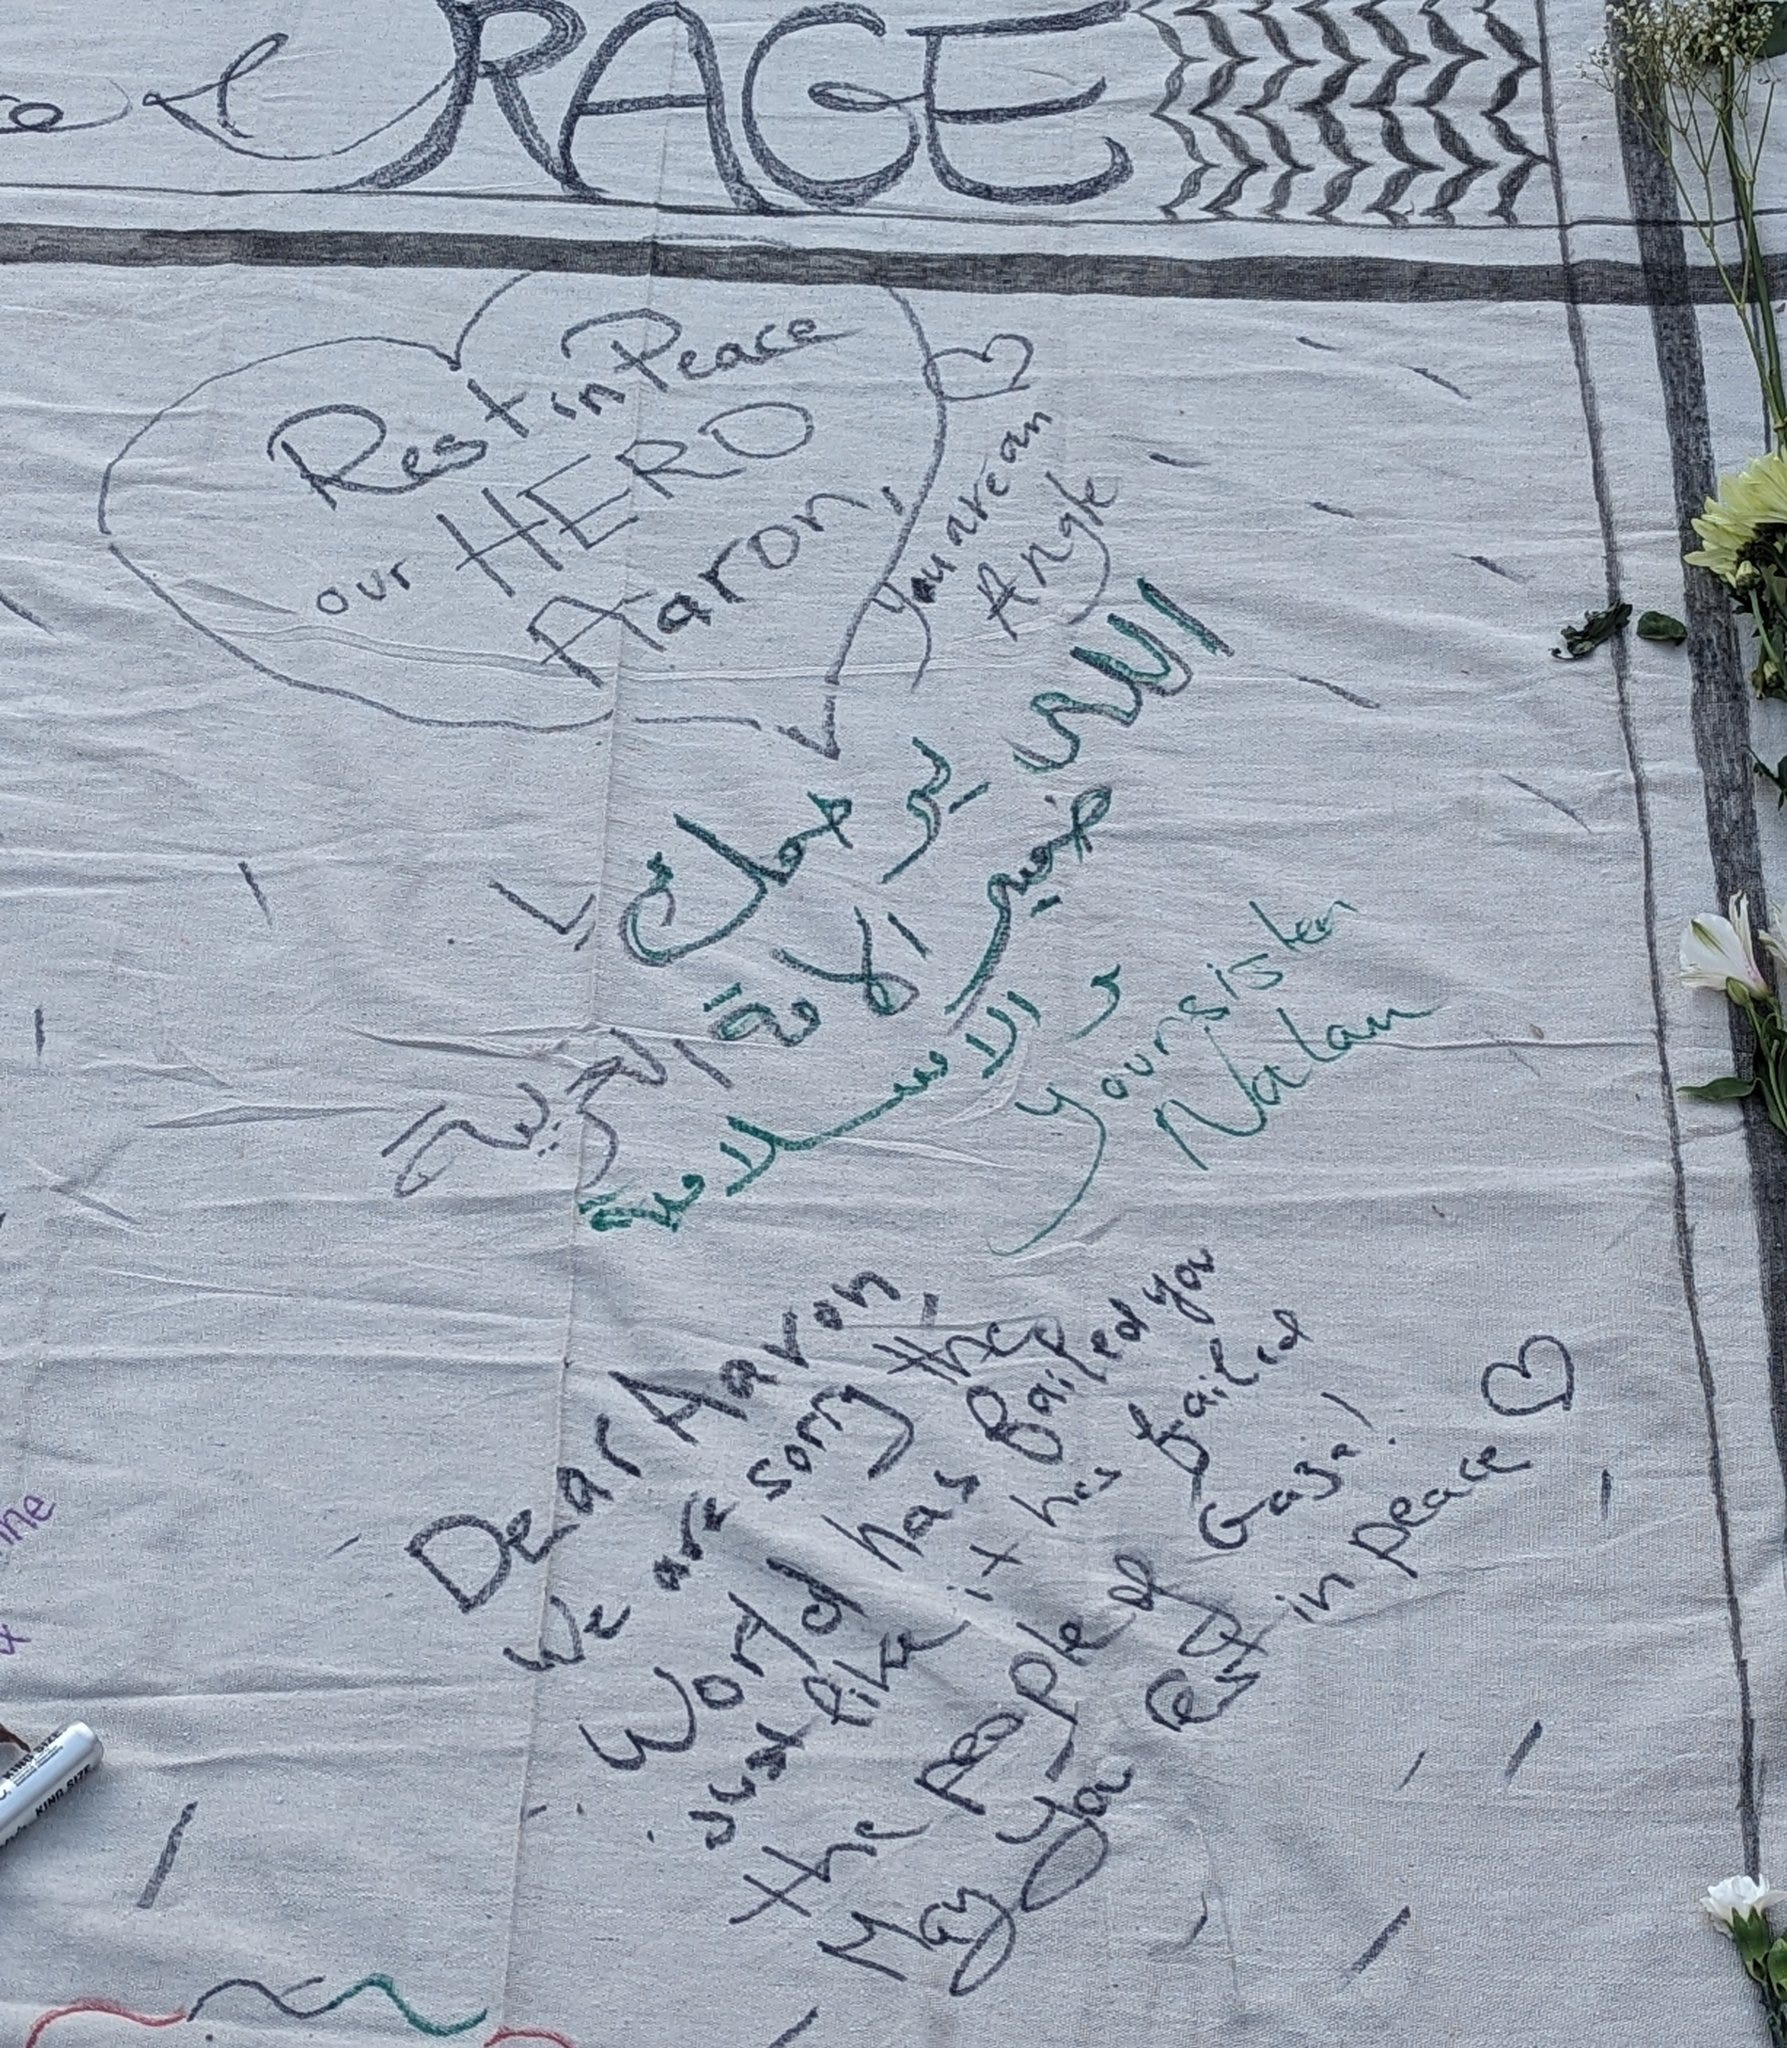 & RAGE
Rest in Peace
our HERO
Aaron,
you are an
Angle
الله يرحمك يا
ضمير الامة العربية
و الاسلامية
your sister
Nalan
Dear Aaron,
We are sorry the
World has Bailed you
just like it has failed
the people of Gaza!
May you Rest in peace
KING SIZE
KING SIZE